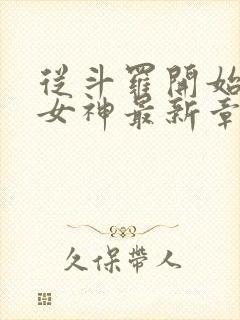 從斗羅開始
女神最新章
久保帶人